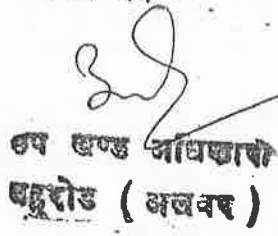 उप खण्ड अधिकारी
बहरोड ( अलवर )